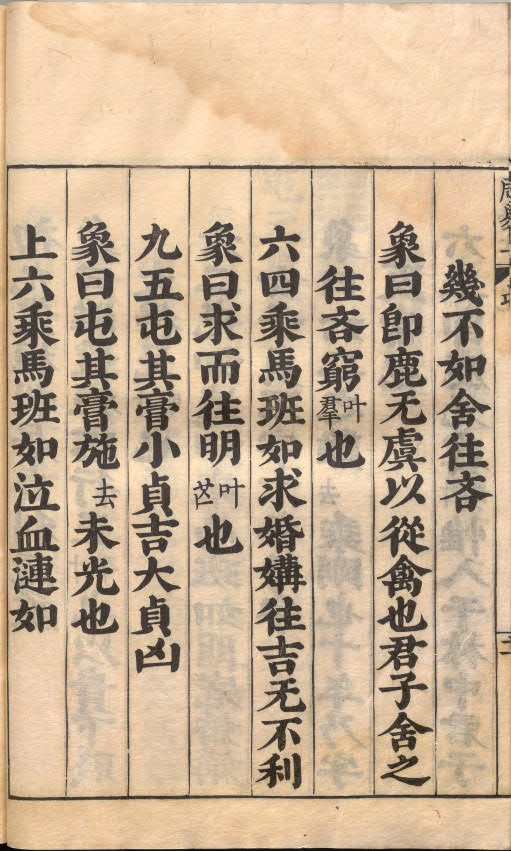 幾不如舍往吝
象曰卽鹿无虞以從禽也君子舍之
往吝窮叶羣也
六四乘馬班如求婚媾往吉无不利
象曰求而往明叶芒也
九五屯其膏小貞吉大貞凶
象曰屯其膏施去未光也
上六乘馬班如泣血漣如